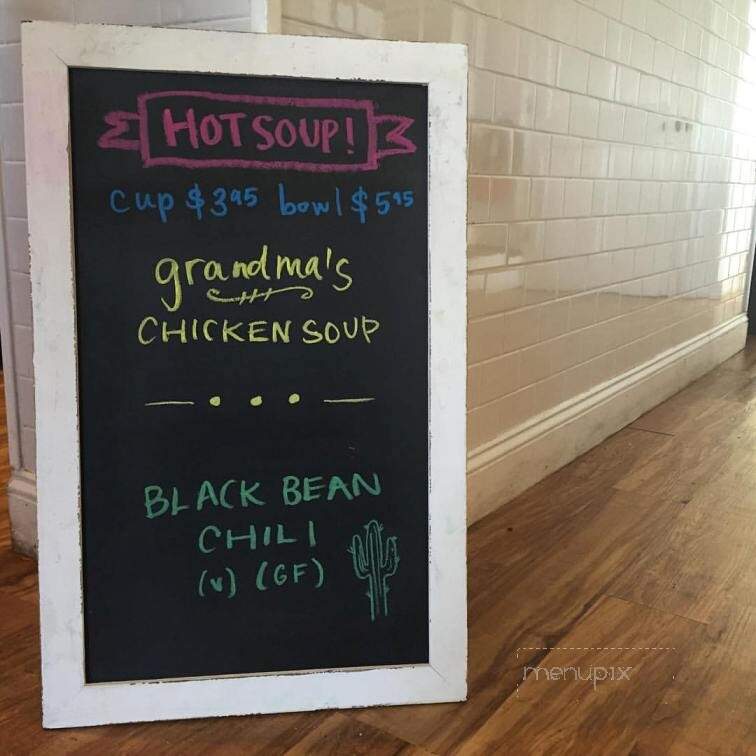 HOT SOUP!
cup $3.95 bowl $5.95
grandma's
CHICKEN SOUP
BLACK BEAN
CHILI
(v) (GF)
menupix